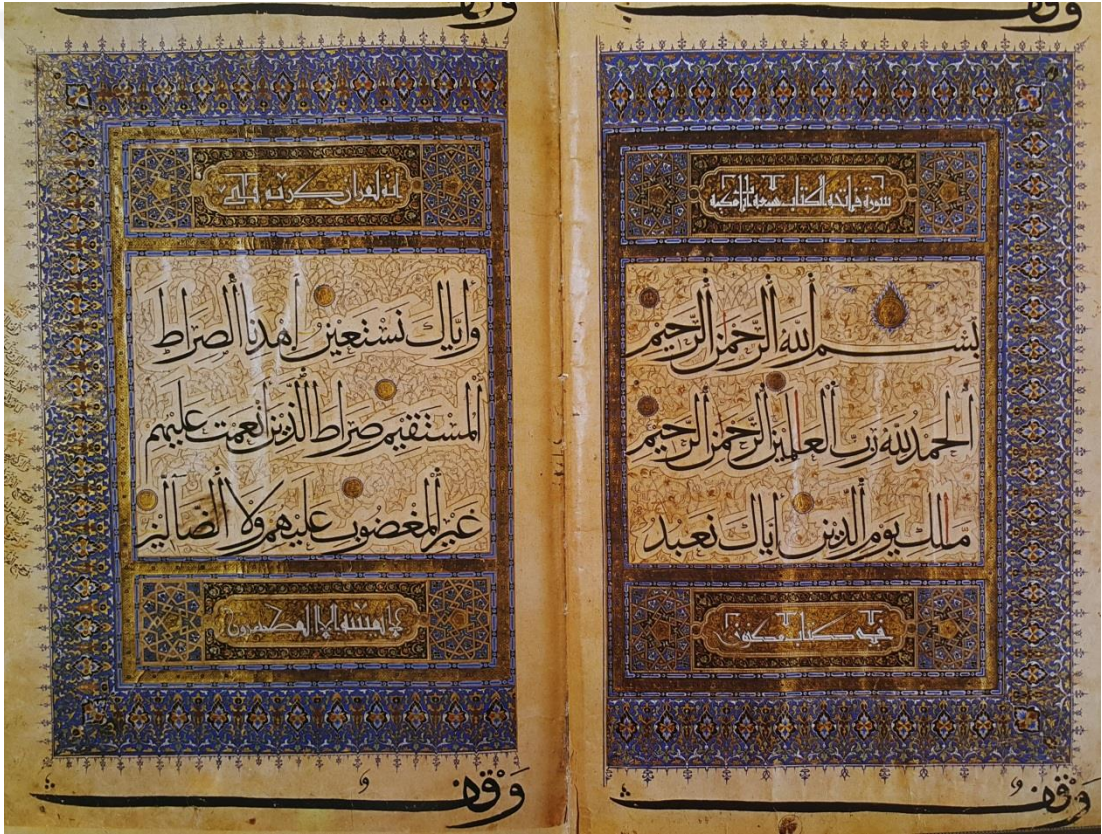 وقف
سورة فاتحة الكتاب مكية
بِسْمِ اللهِ الرَّحْمٰنِ الرَّحِيْمِ
اَلْحَمْدُ لِلّٰهِ رَبِّ الْعٰلَمِيْنَ الرَّحْمٰنِ الرَّحِيْمِ
مٰلِكِ يَوْمِ الدِّيْنِ اِيَّاكَ نَعْبُدُ
في كتاب مكنون
وَقْف
انه لقران كريم
وَاِيَّاكَ نَسْتَعِيْنُ اِهْدِنَا الصِّرَاطَ
الْمُسْتَقِيْمَ صِرَاطَ الَّذِيْنَ اَنْعَمْتَ عَلَيْهِمْ
غَيْرِ الْمَغْضُوْبِ عَلَيْهِمْ وَلَا الضَّآلِّيْنَ
لا يمسه الا المطهرون
وَقْف